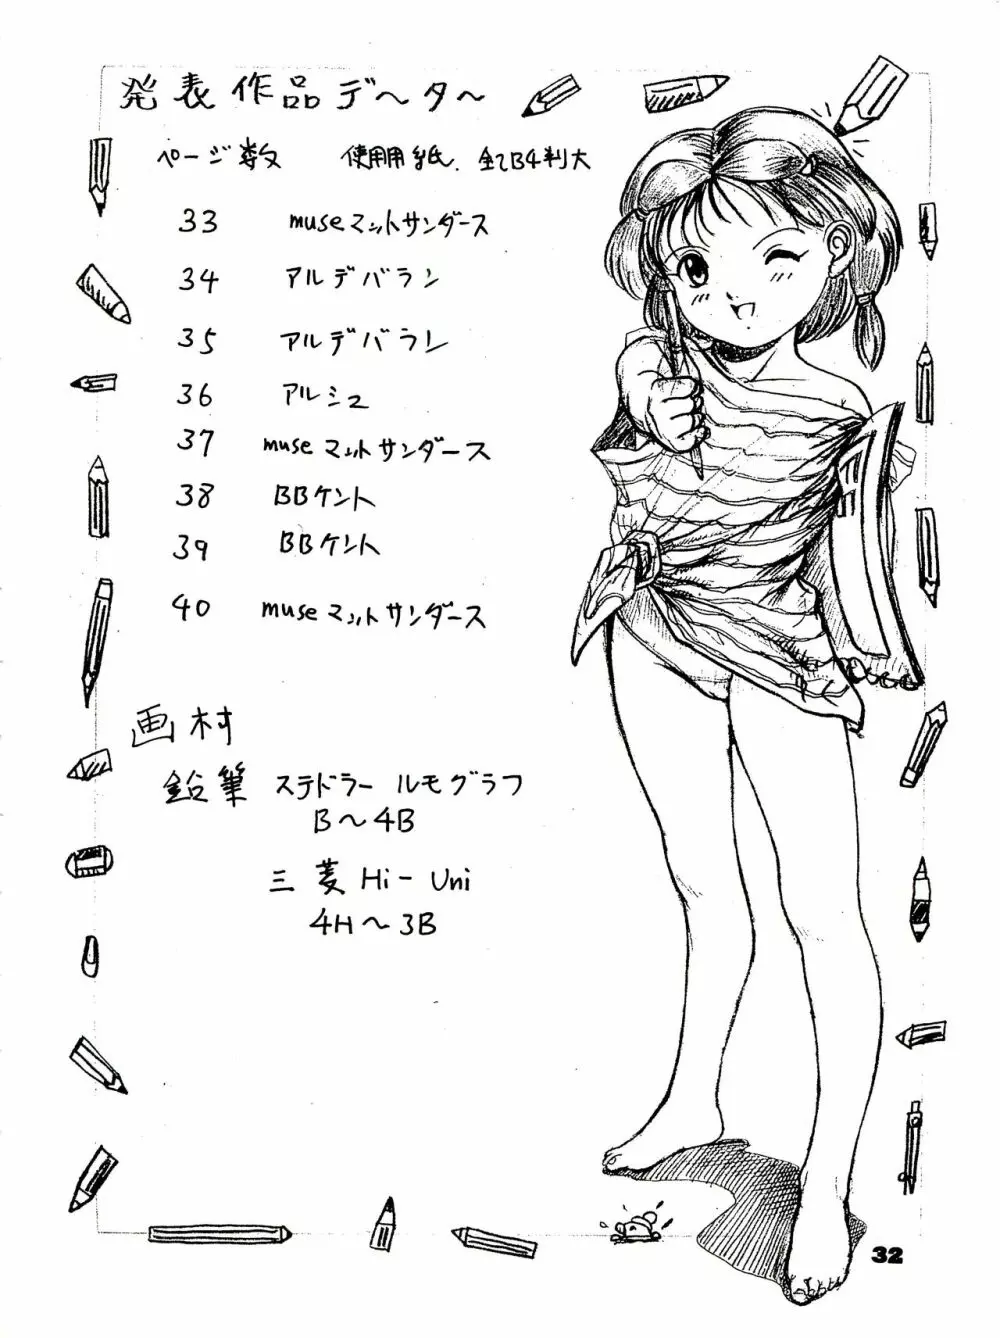 発表作品データ〜
ページ数 使用用紙. 全てB4判大
33 museマットサンダース
34 アルデバラン
35 アルデバラン
36 アルシュ
37 museマットサンダース
38 BBケント
39 BBケント
40 museマットサンダース
画材
鉛筆 ステドラー ルモグラフ
B〜4B
三菱 Hi-Uni
4H〜3B
32